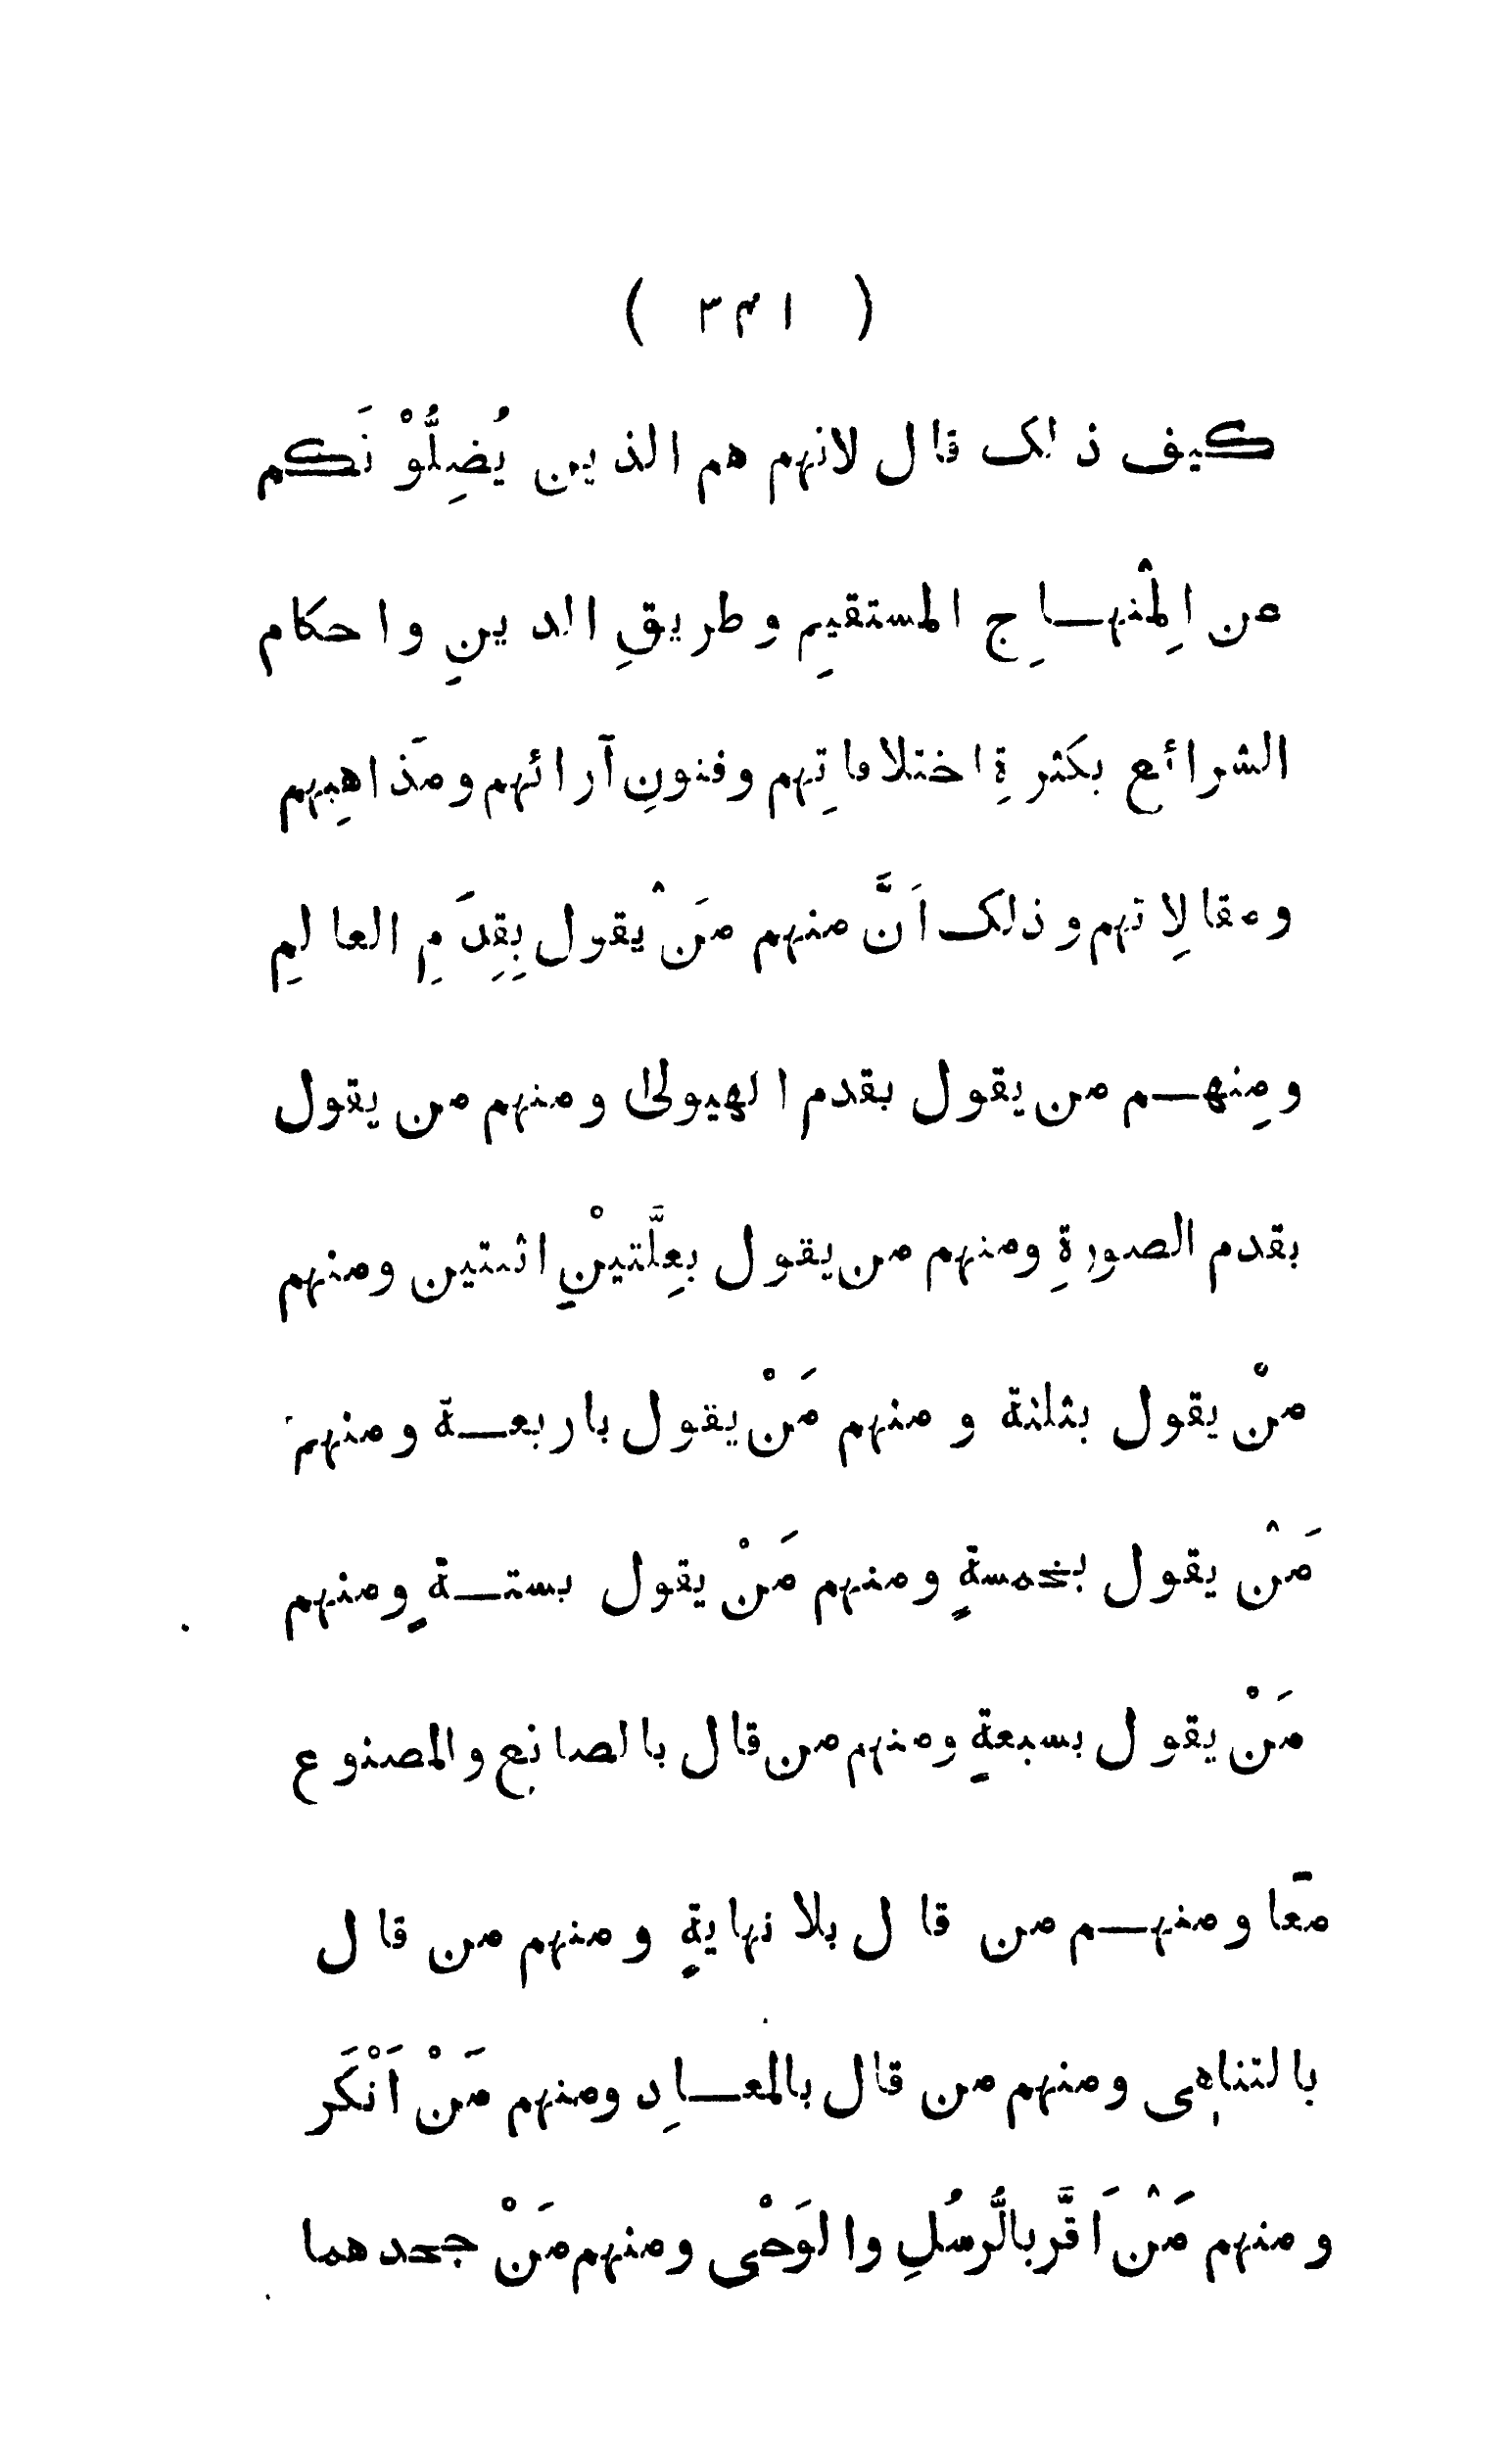 ( ٣٤١ )
كيف ذلك قال لانهم هم الذين يُضِلُّوْنَكم
عن اِلمْنهاجِ المستقيمِ وطريقِ الدينِ واحكام
الشرائع بكثرةِ اختلافاتِهم وفنونِ آرائهم ومَذاهِبِهم
ومقالاِتهم وذلك اَنَّ منهم مَنْ يقول بِقِدَمِ العالمِ
ومِنهم من يقول بقدم الهيولىٰ ومنهم من يقول
بقدم الصورةِ ومنهم من يقول بعِلَّتيْنِ اثنتين ومنهم
منْ يقول بثلثة ومنهم مَنْ يقول باربعة ومنهم
مَنْ يقول بخمسةٍ ومنهم مَنْ يقول بستةٍ ومنهم
مَنْ يقول بسبعةٍ ومنهم من قال بالصانِع والمصنوع
معَا ومنهم من قال بلا نهايةٍ ومنهم من قال
بالتناهِى ومنهم من قال بالمعادِ ومنهم مَنْ اَنْكَر
ومنهم مَنْ اَقَّر بالُّرسُلِ والوَحْى ومنهم مَنْ جحدهما